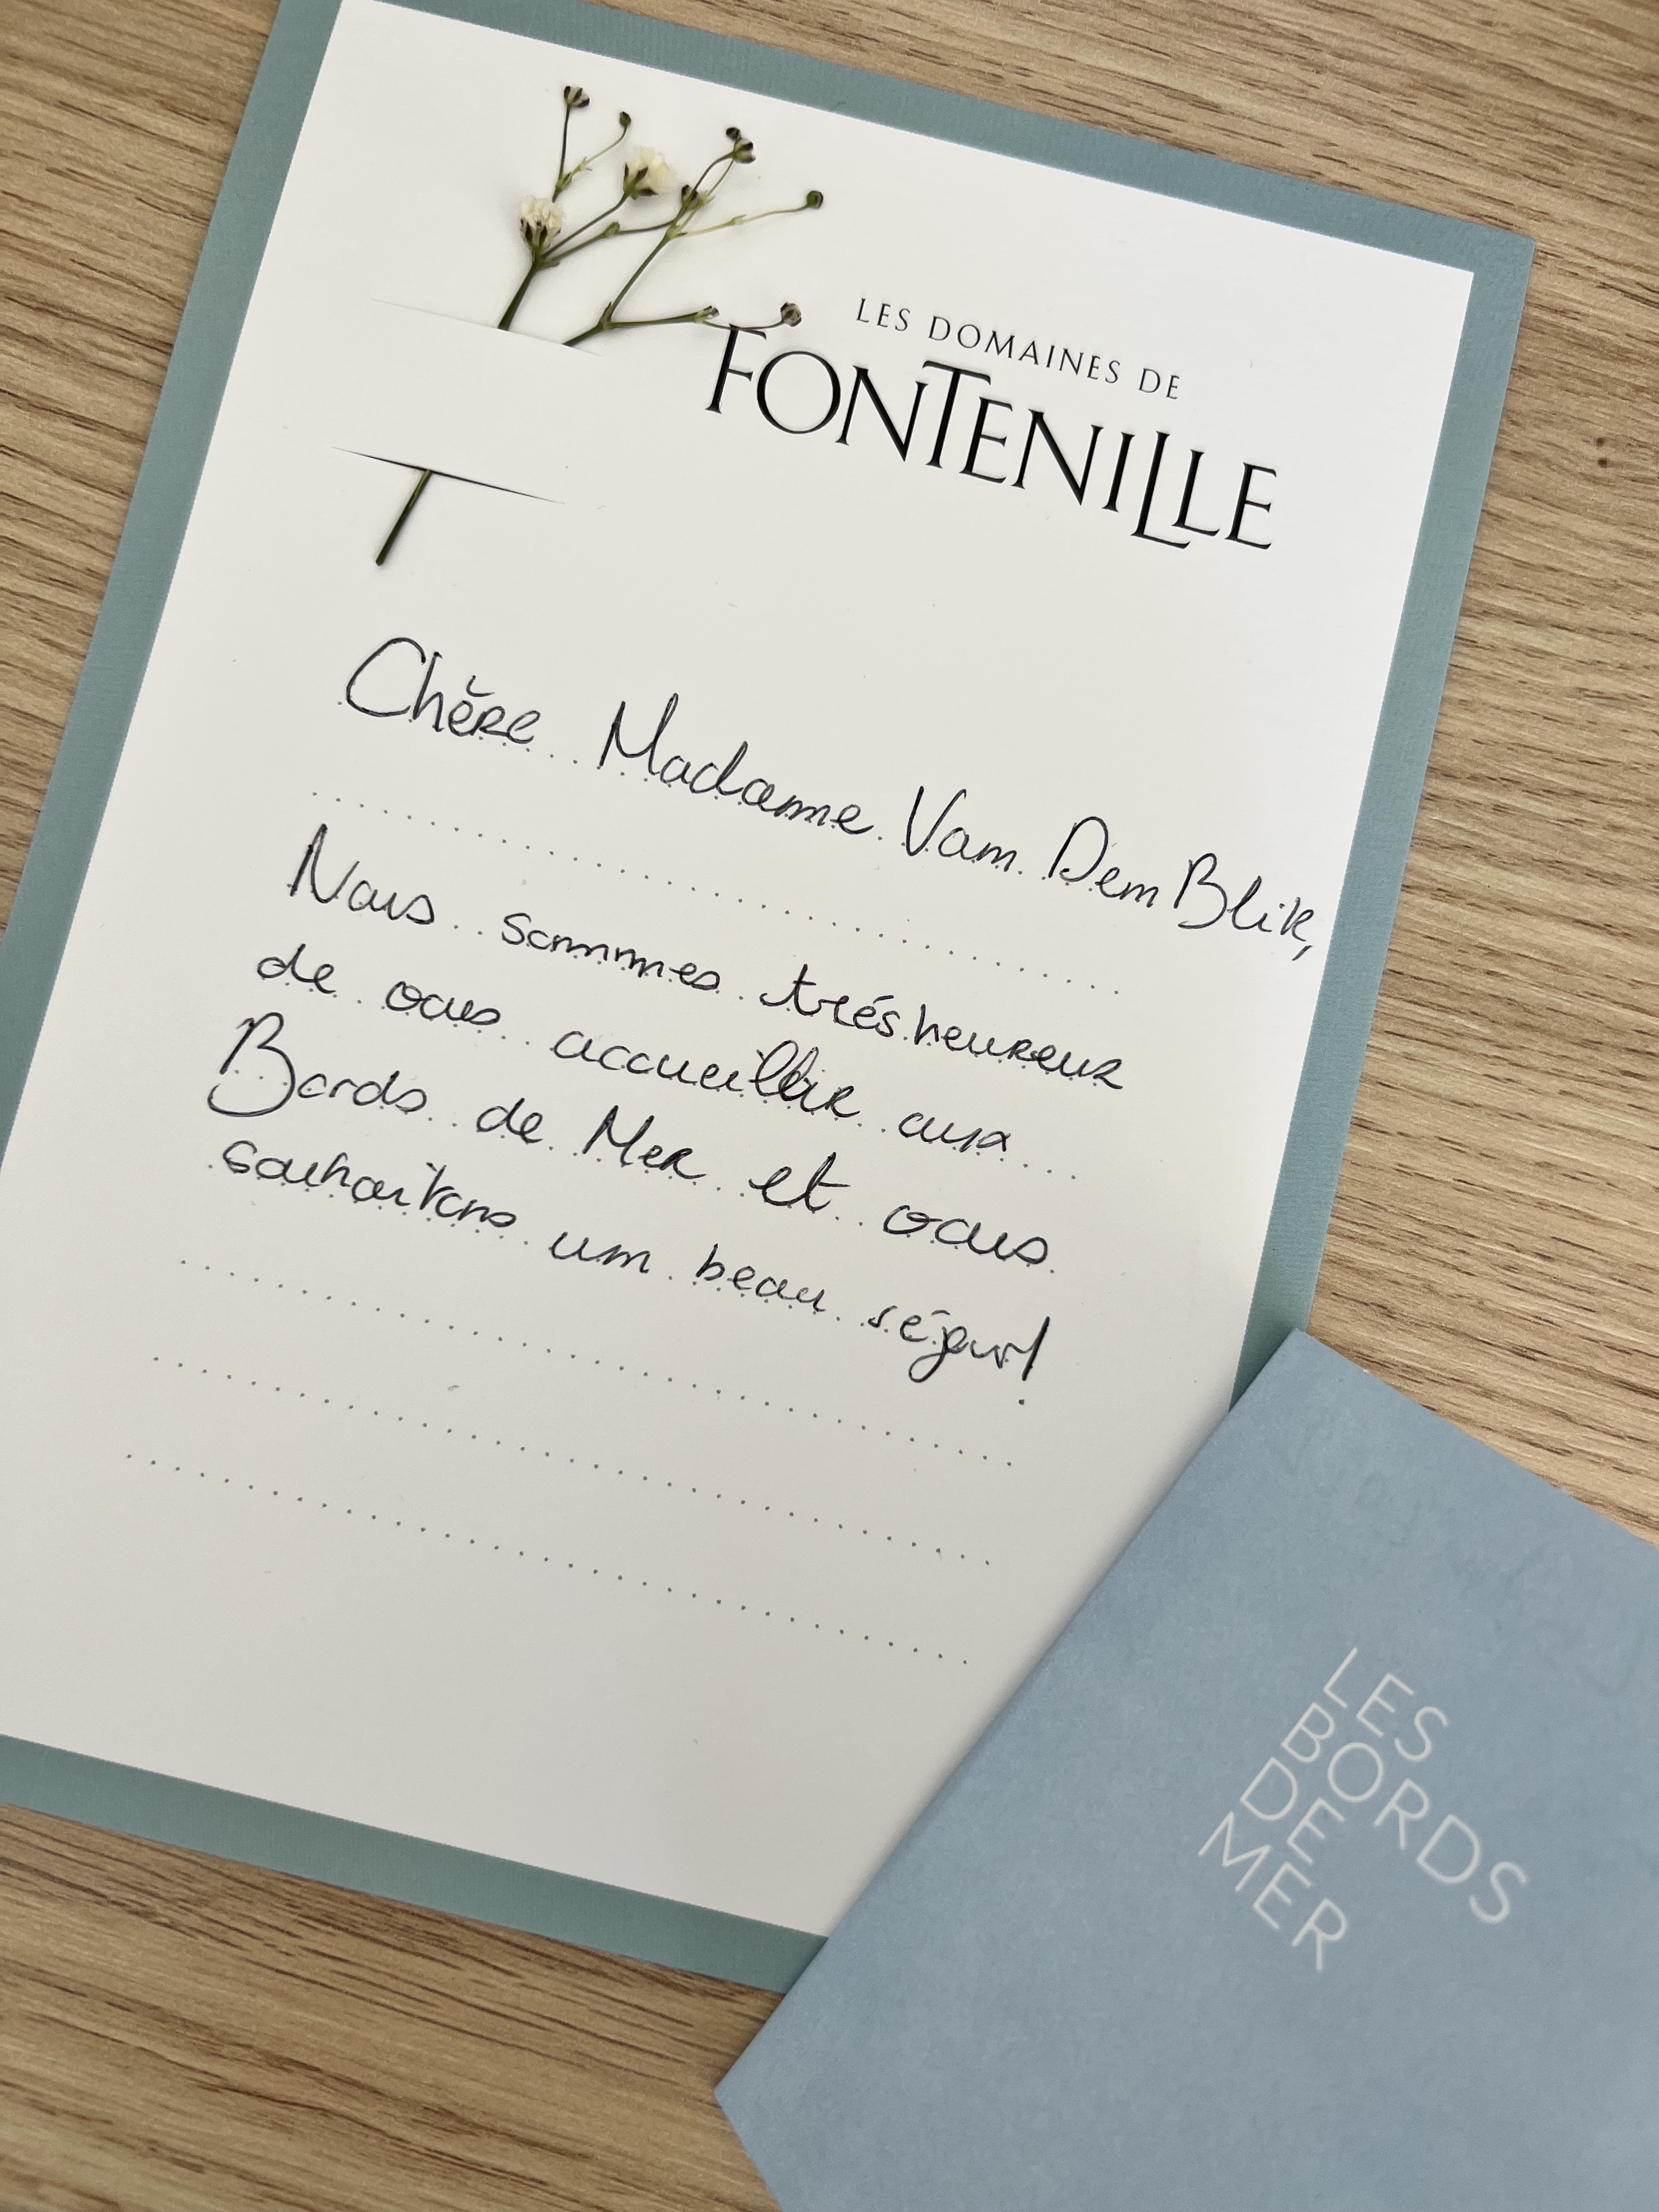 LES DOMAINES DE
FONTENILLE
Chère Madame Van Den Blik,
Nous sommes très heureux
de vous accueillir aux
Bords de Mer et vous
souhaitons un beau séjour!
LES
BORDS
DE
MER